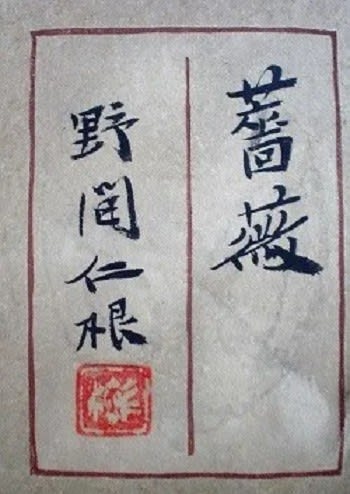 薔薇
野間仁根